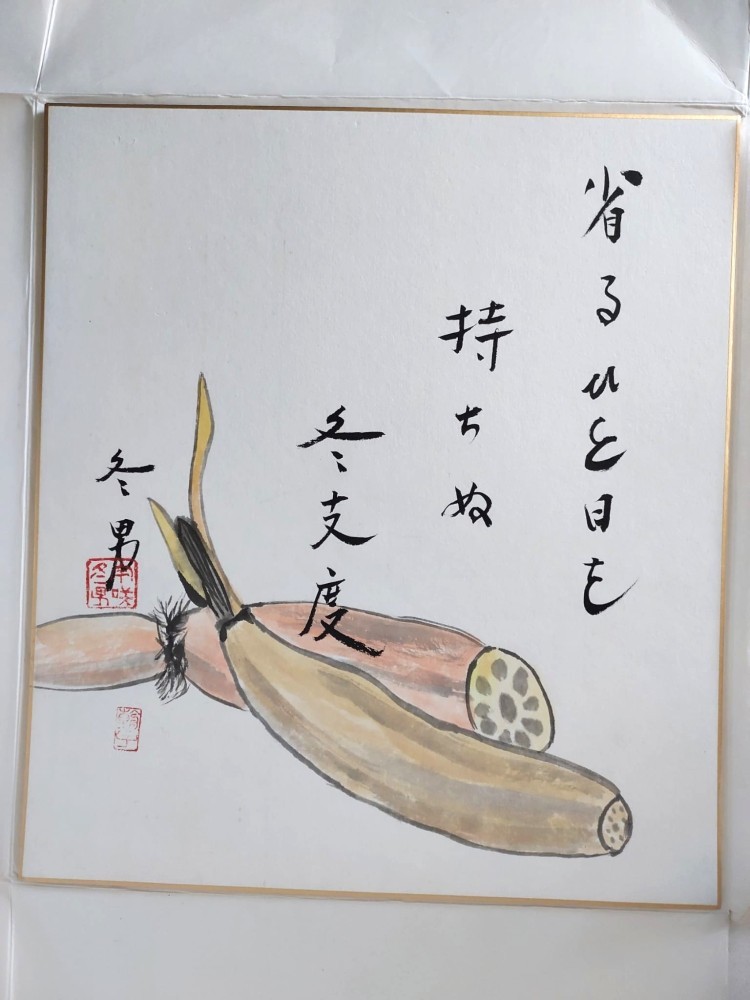 省るひと日を
持ちぬ
冬支度
冬男